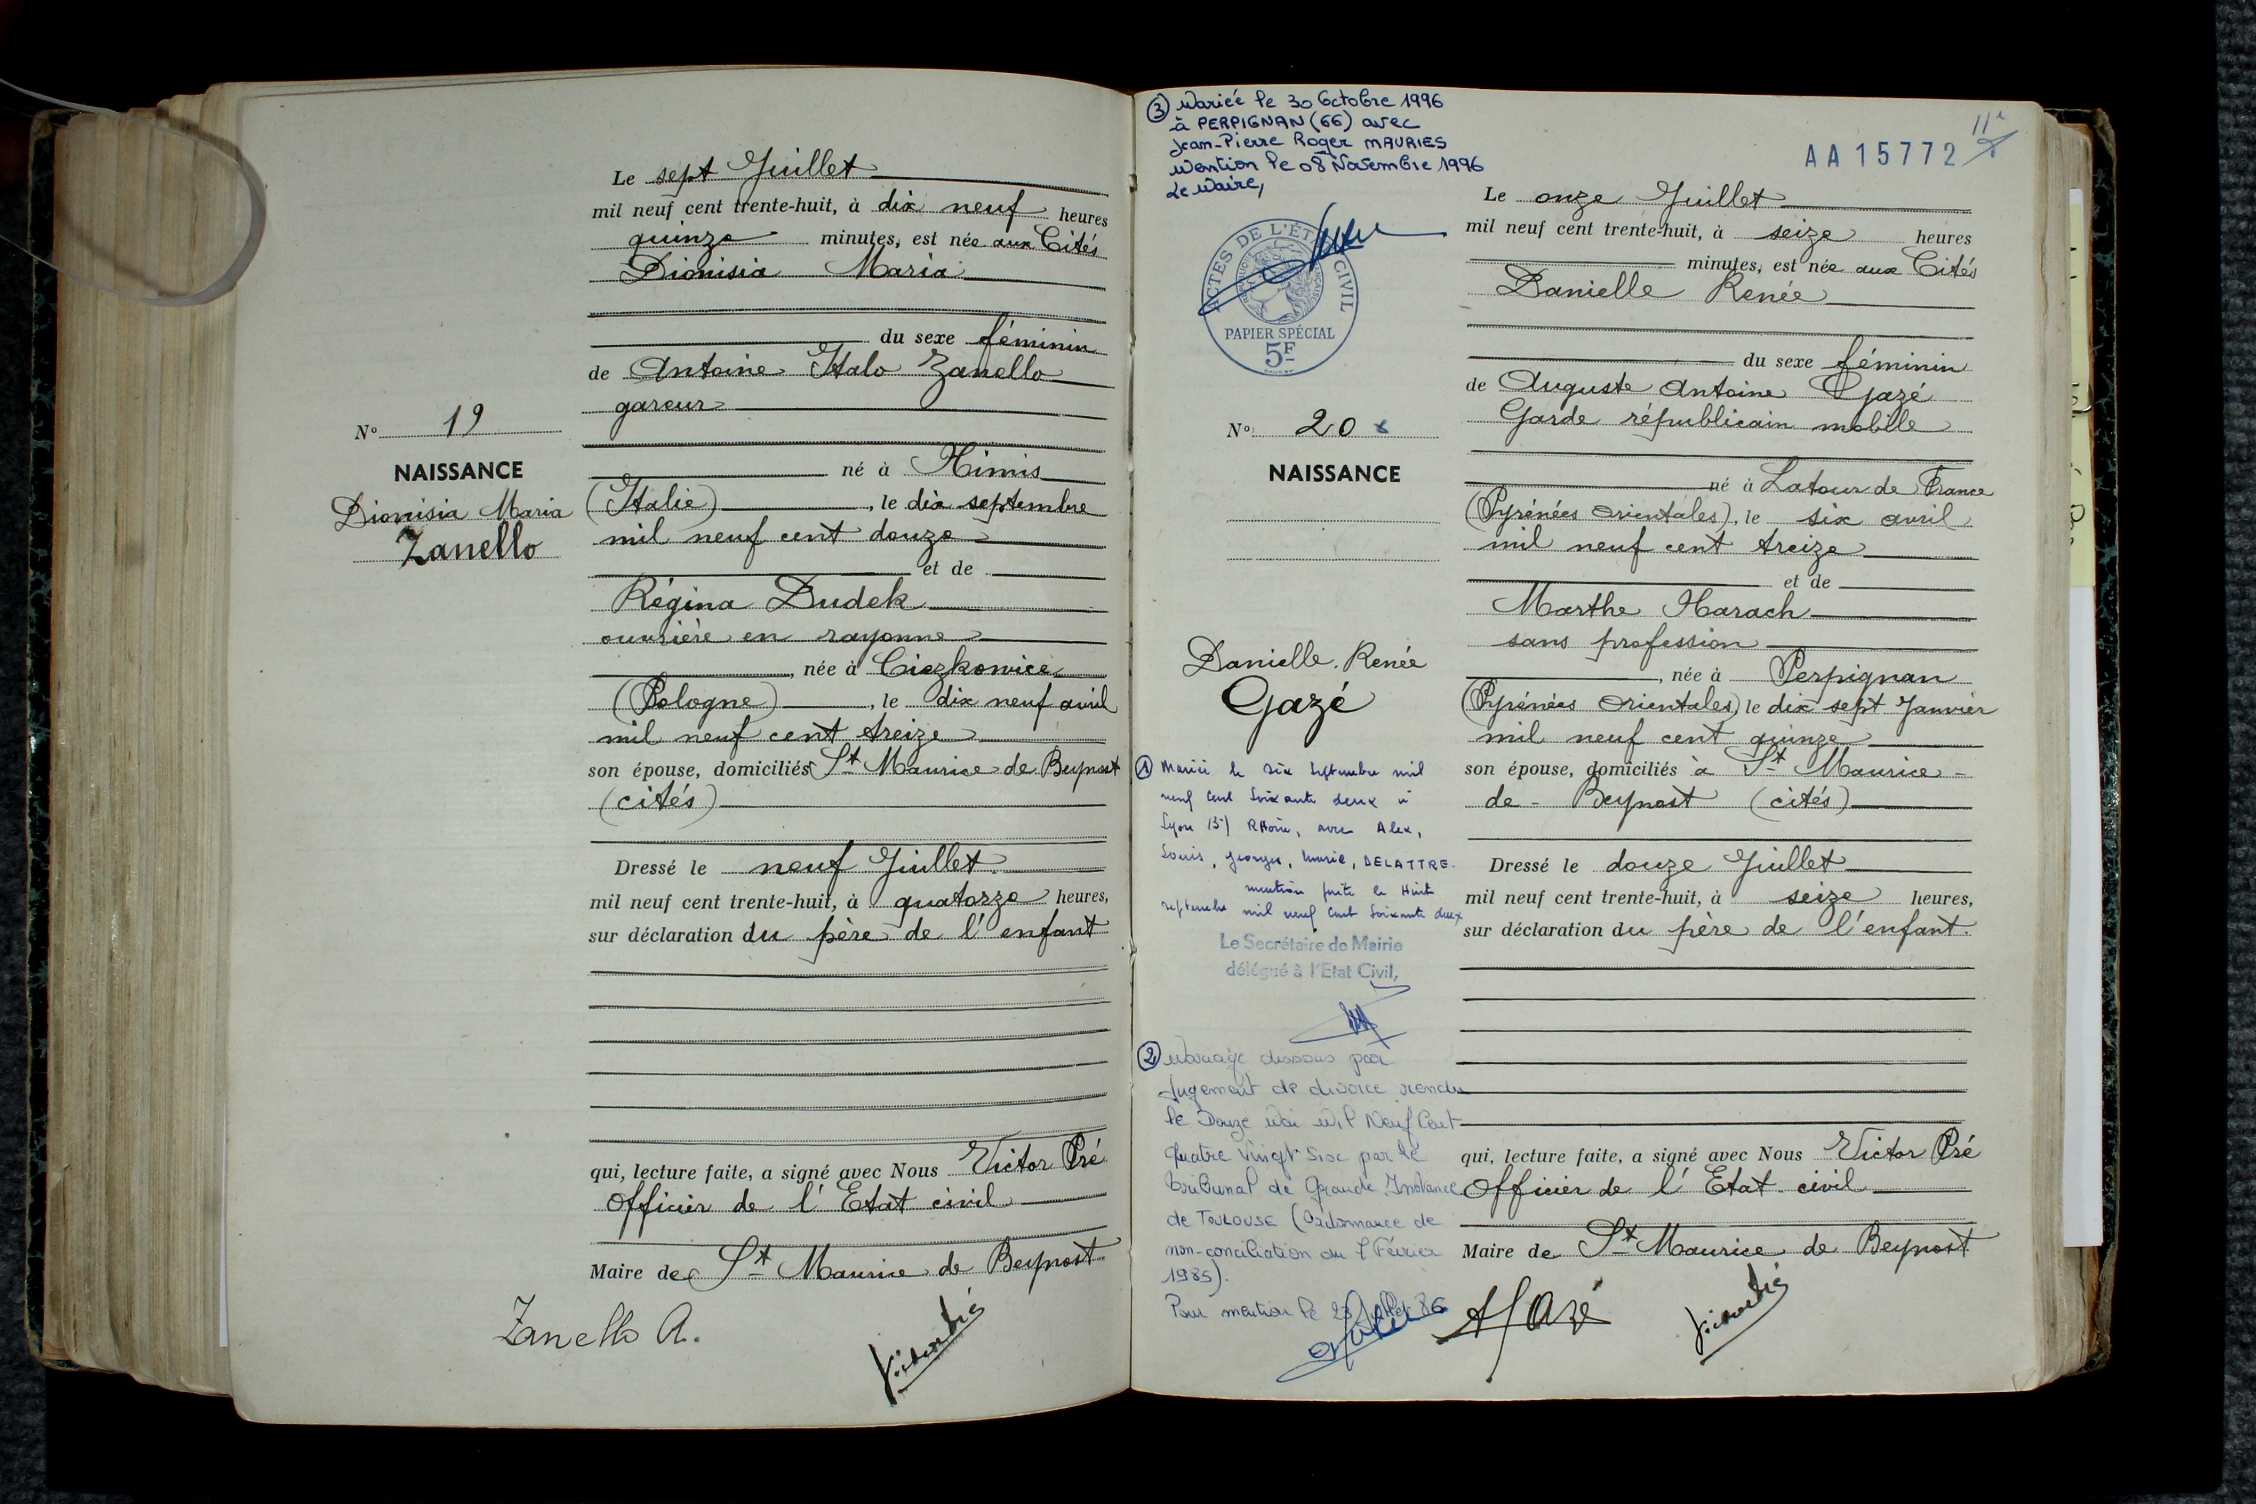 Le sept Juillet
mil neuf cent trente-huit, à dix neuf heures
quinze minutes, est née aux Cités
Dionisia Maria
du sexe féminin
de Antoine Italo Zanello
gareur
né à Nimis
(Italie), le dix septembre
mil neuf cent douze
et de
Régina Dudek
ouvrière en rayonne
, née à Ciezkowice
(Pologne), le dix neuf avril
mil neuf cent treize
son épouse, domiciliés St Maurice de Beynost
(cités)
Dressé le neuf Juillet
mil neuf cent trente-huit, à quatorze heures,
sur déclaration du père de l'enfant
qui, lecture faite, a signé avec Nous Victor Pré
Officier de l'Etat civil
Maire de St Maurice de Beynost
Zanello A.
No 19
NAISSANCE
Dionisia Maria
Zanello
③ Mariée le 30 Octobre 1996
à PERPIGNAN (66) avec
Jean-Pierre Roger MAURIES
Mention le 08 Novembre 1996
Le Maire,
ACTES DE L'ÉTAT CIVIL
PAPIER SPÉCIAL
5F
No 20 x
NAISSANCE
Danielle Renée
Gazé
① Mariée le six septembre mil
neuf cent soixante deux à
Lyon (5e) Rhône, avec Alex,
Louis, Georges, Marie, DELATTRE.
mention faite le Huit
septembre mil neuf cent soixante deux
Le Secrétaire de Mairie
délégué à l'Etat Civil,
② Mariage dissous par
Jugement de divorce rendu
le Douze Mai Mil Neuf Cent
Quatre Vingt Six par le
Tribunal de Grande Instance
de TOULOUSE (Ordonnance de
non-conciliation du 7 Février
1985).
Pour mention le 86
11e
AA15772
Le onze Juillet
mil neuf cent trente-huit, à seize heures
minutes, est née aux Cités
Danielle Renée
du sexe féminin
de Auguste Antoine Gazé
Garde républicain mobile
né à Latour de France
(Pyrénées Orientales), le six avril
mil neuf cent treize
et de
Marthe Harach
sans profession
, née à Perpignan
(Pyrénées Orientales) le dix sept Janvier
mil neuf cent quinze
son épouse, domiciliés à St Maurice -
de - Beynost (cités)
Dressé le douze Juillet
mil neuf cent trente-huit, à seize heures,
sur déclaration du père de l'enfant.
qui, lecture faite, a signé avec Nous Victor Pré
Officier de l'Etat civil
Maire de St Maurice de Beynost
AGazé